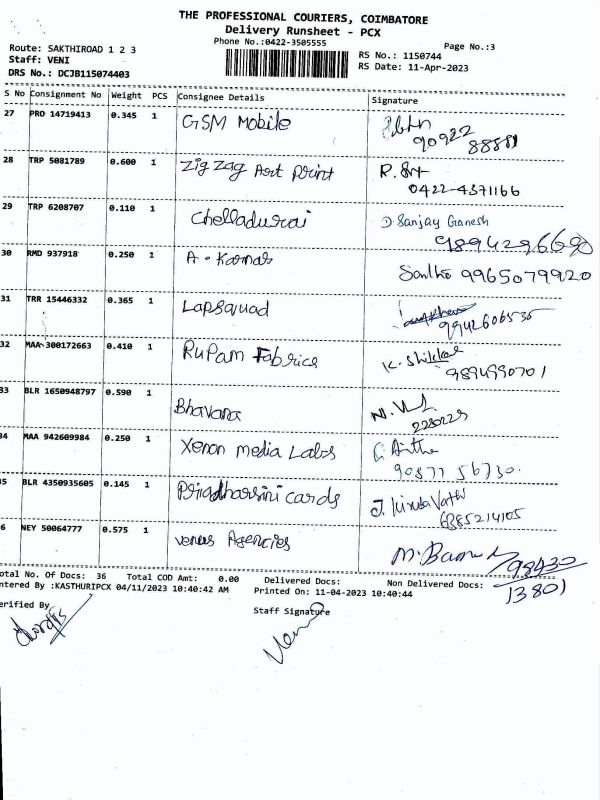 THE PROFESSIONAL COURIERS, COIMBATORE
Delivery Runsheet - PCX
Phone No.:0422-3505555
Page No.:3
Route: SAKTHIROAD 1 2 3
Staff: VENI
DRS No.: DCJB115074403
RS No.: 1150744
RS Date: 11-Apr-2023
S No Consignment No Weight PCS Consignee Details Signature
27 PRO 14719413 0.345 1 GSM Mobile
90922
88881
28 TRP 5081789 0.600 1 Zig Zag Art Print
0422-4371166
29 TRP 6208707 0.110 1 Chelladurai D. Sanjay Ganesh
9894296690
30 RMD 937918 0.250 1 9965079920
31 TRR 15446332 0.365 1 Lapsquad
9942606535
32 MAA 300172663 0.410 1 Rupam Fabrics
9894990701
33 BLR 1650948797 0.590 1 Bhavana
34 MAA 942609984 0.250 1 Xenon media Labs
90877 56730.
35 BLR 4350935605 0.145 1 Priyadharsini cards
6385214105
36 NEY 50064777 0.575 1 venus Agencies
98430
13801
Total No. Of Docs: 36 Total COD Amt: 0.00 Delivered Docs: Non Delivered Docs:
Entered By :KASTHURIPCX 04/11/2023 10:40:42 AM Printed On: 11-04-2023 10:40:44
Verified By
Staff Signature